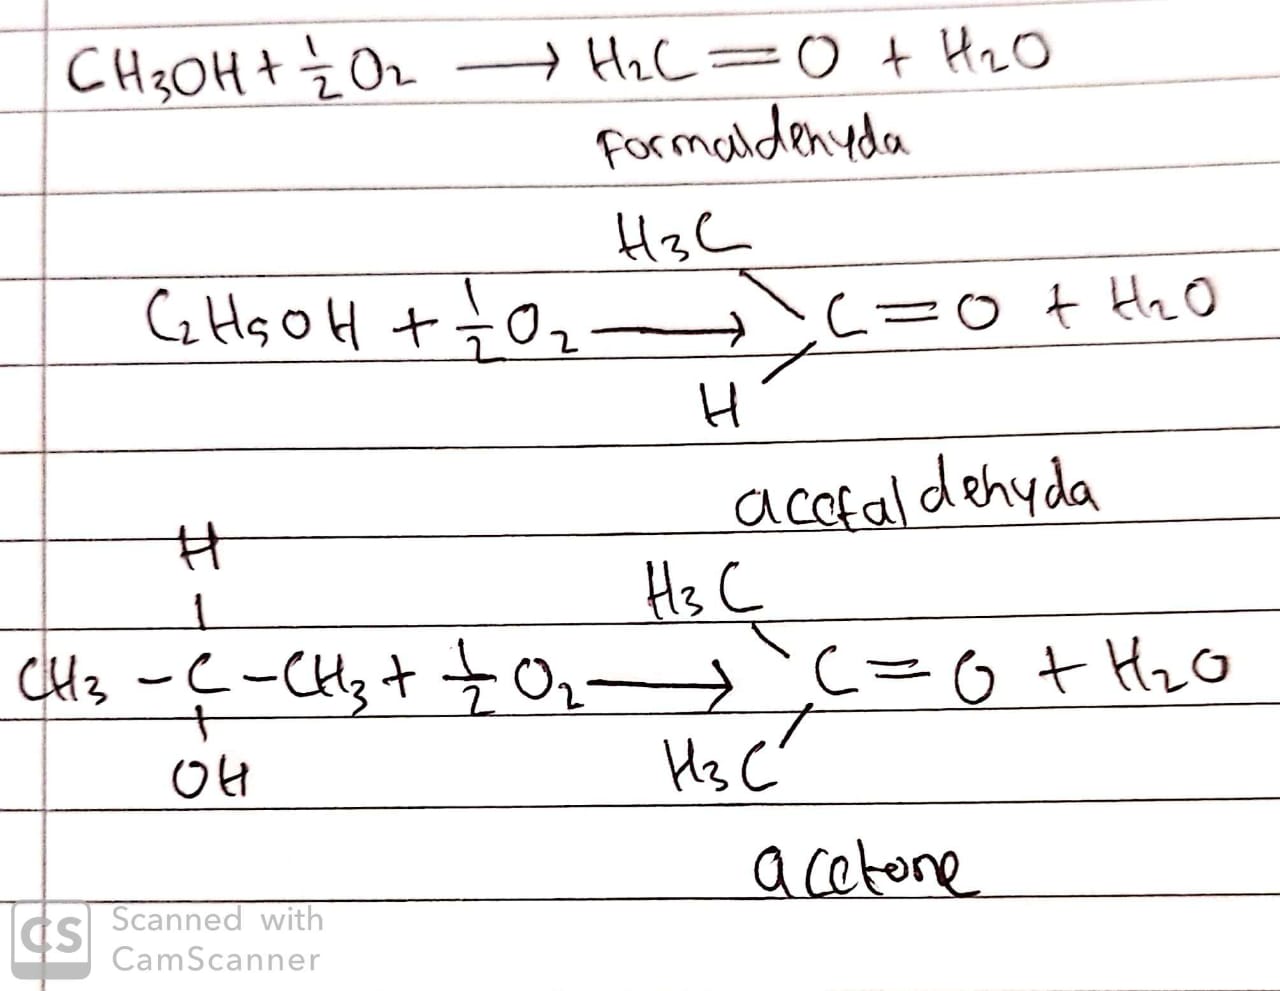 CH3OH + 1/2 O2 → H2C = O + H2O
Formaldehyda
H3C
C2H5OH + 1/2 O2 → C = O + H2O
H
acetaldehyda
H
H3C
CH3 - C - CH3 + 1/2 O2 → C = O + H2O
OH
H3C
acetone
CS
Scanned with
CamScanner